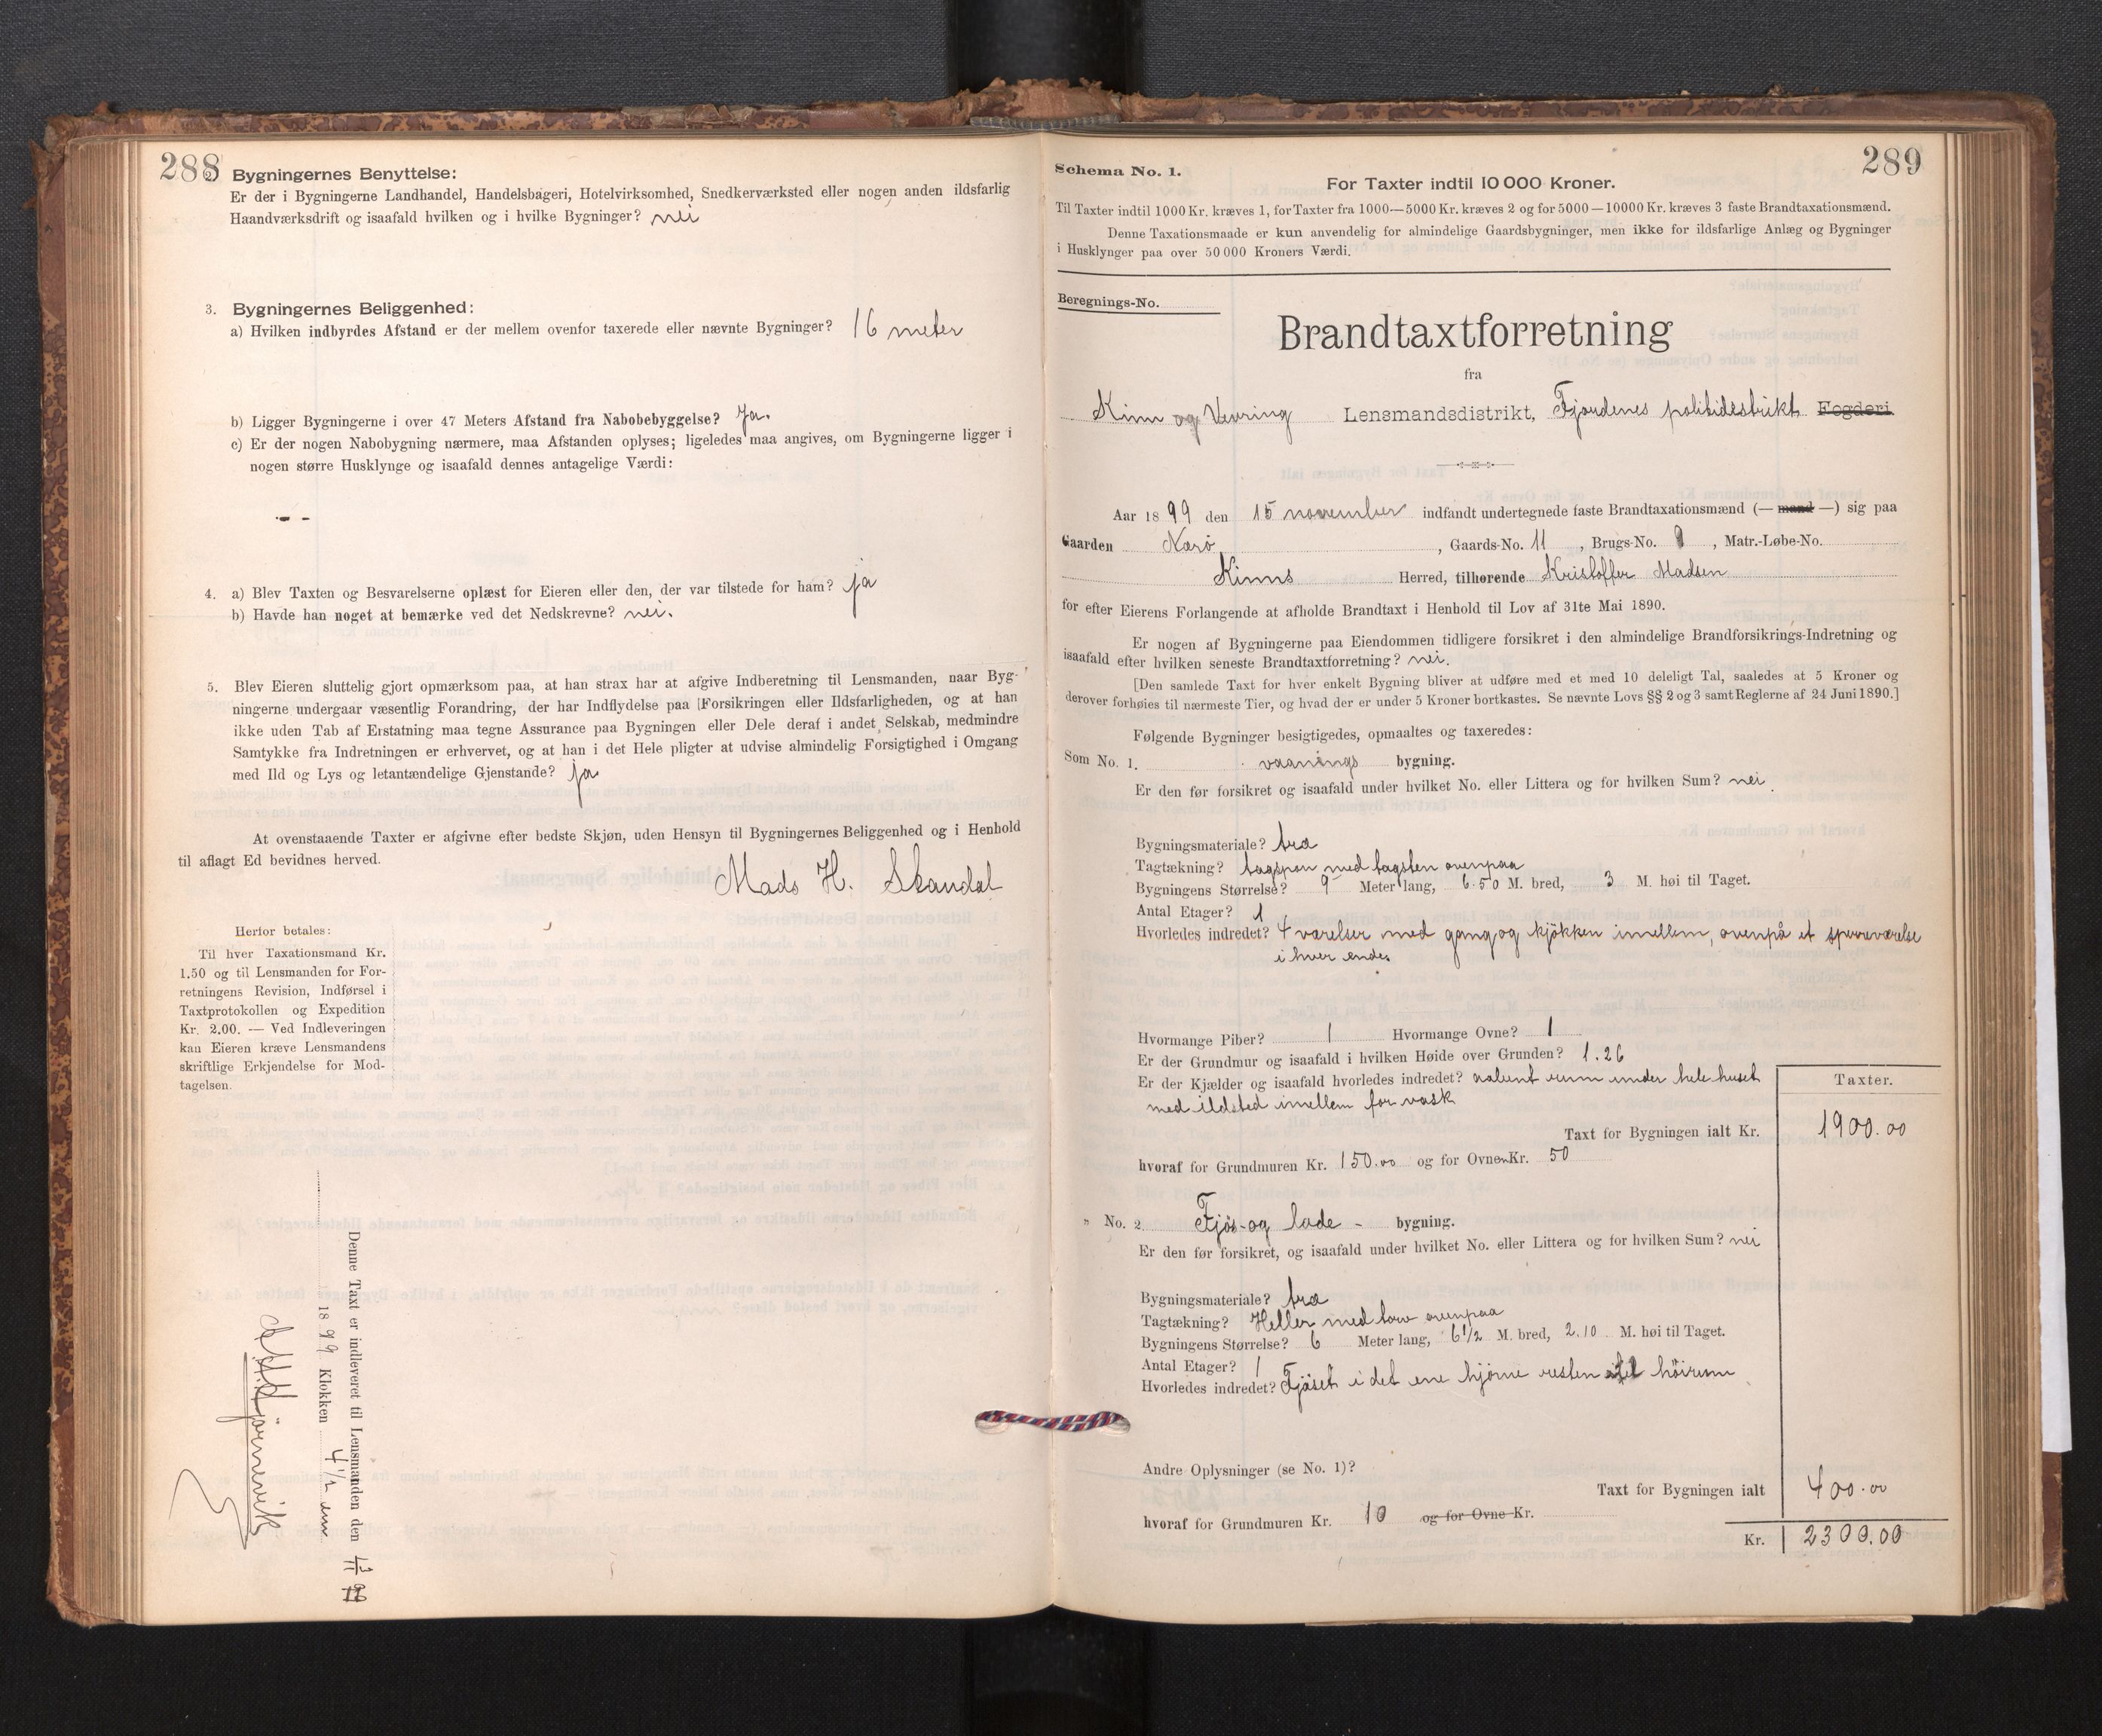 288
Bygningernes Benyttelse:
Er der i Bygningerne Landhandel, Handelsbageri, Hotelvirksomhed, Snedkerværksted eller nogen anden ildsfarlig
Haandværksdrift og isaafald hvilken og i hvilke Bygninger? nei
3. Bygningernes Beliggenhed:
a) Hvilken indbyrdes Afstand er der mellem ovenfor taxerede eller nævnte Bygninger? 16 meter
b) Ligger Bygningerne i over 47 Meters Afstand fra Nabobebyggelse? Ja.
c) Er der nogen Nabobygning nærmere, maa Afstanden oplyses; ligeledes maa angives, om Bygningerne ligger i
nogen større Husklynge og isaafald dennes antagelige Værdi:
- -
4. a) Blev Taxten og Besvarelserne oplæst for Eieren eller den, der var tilstede for ham? ja
b) Havde han noget at bemærke ved det Nedskrevne? nei.
5. Blev Eieren sluttelig gjort opmærksom paa, at han strax har at afgive Indberetning til Lensmanden, naar Byg-
ningerne undergaar væsentlig Forandring, der har Indflydelse paa Forsikringen eller Ildsfarligheden, og at han
ikke uden Tab af Erstatning maa tegne Assurance paa Bygningen eller Dele deraf i andet Selskab, medmindre
Samtykke fra Indretningen er erhvervet, og at han i det Hele pligter at udvise almindelig Forsigtighed i Omgang
med Ild og Lys og letantændelige Gjenstande? ja
At ovenstaaende Taxter er afgivne efter bedste Skjøn, uden Hensyn til Bygningernes Beliggenhed og i Henhold
til aflagt Ed bevidnes herved.
Mads H. Skandal
Herfor betales:
Til hver Taxationsmand Kr.
1.50 og til Lensmanden for For-
retningens Revision, Indførsel i
Taxtprotokollen og Expedition
Kr. 2.00. — Ved Indleveringen
kan Eieren kræve Lensmandens
skriftlige Erkjendelse for Mod-
tagelsen.
Denne Taxt er indleveret til Lensmanden den
1899 Klokken 4 1/2 em
289
Schema No. 1.
For Taxter indtil 10 000 Kroner.
Til Taxter indtil 1000 Kr. kræves 1, for Taxter fra 1000—5000 Kr. kræves 2 og for 5000—10000 Kr. kræves 3 faste Brandtaxationsmænd.
Denne Taxationsmaade er kun anvendelig for almindelige Gaardsbygninger, men ikke for ildsfarlige Anlæg og Bygninger
i Husklynger paa over 50 000 Kroners Værdi.
Beregnings-No.
Brandtaxtforretning
fra
Kinn og Vevring Lensmandsdistrikt, Fjordenes politidistrikt Fogderi
Aar 1899 den 15 november indfandt undertegnede faste Brandtaxationsmænd (— mand —) sig paa
Gaarden Nærø, Gaards-No. 11, Brugs-No. 8, Matr.-Løbe-No.
Kinns Herred, tilhørende Kristoffer Madsen
for efter Eierens Forlangende at afholde Brandtaxt i Henhold til Lov af 31te Mai 1890.
Er nogen af Bygningerne paa Eiendommen tidligere forsikret i den almindelige Brandforsikrings-Indretning og
isaafald efter hvilken seneste Brandtaxtforretning? nei.
[Den samlede Taxt for hver enkelt Bygning bliver at udføre med et med 10 deleligt Tal, saaledes at 5 Kroner og
derover forhøies til nærmeste Tier, og hvad der er under 5 Kroner bortkastes. Se nævnte Lovs §§ 2 og 3 samt Reglerne af 24 Juni 1890.]
Følgende Bygninger besigtigedes, opmaaltes og taxeredes:
Som No. 1. vaanings bygning.
Er den før forsikret og isaafald under hvilket No. eller Littera og for hvilken Sum? nei.
Bygningsmateriale? træ
Tagtækning? tagspon med tagsten ovenpaa
Bygningens Størrelse? 9 Meter lang, 6.50 M. bred, 3 M. høi til Taget.
Antal Etager? 1
Hvorledes indredet? 4 værelser med gang og kjøkken imellem, ovenpå et sperreværelse
i hver ende.
Hvormange Piber? 1 Hvormange Ovne? 1
Er der Grundmur og isaafald i hvilken Høide over Grunden? 1.26
Er der Kjælder og isaafald hvorledes indredet? aabent rum under hele huset
med ildsted imellem for vask
Taxter.
Taxt for Bygningen ialt Kr. 1900.00
hvoraf for Grundmuren Kr. 150.00 og for Ovnen Kr. 50
„ No. 2. Fjøs- og lade - bygning.
Er den før forsikret, og isaafald under hvilket No. eller Littera og for hvilken Sum? nei
Bygningsmateriale? træ
Tagtækning? Heller med torv ovenpaa
Bygningens Størrelse? 6 Meter lang, 6 1/2 M. bred, 2.10 M. høi til Taget.
Antal Etager? 1
Hvorledes indredet? Fjøset i det ene hjørne resten til høirum
Andre Oplysninger (se No. 1)?
Taxt for Bygningen ialt 400.00
hvoraf for Grundmuren Kr. 10 og for Ovne Kr.
Kr. 2300.00